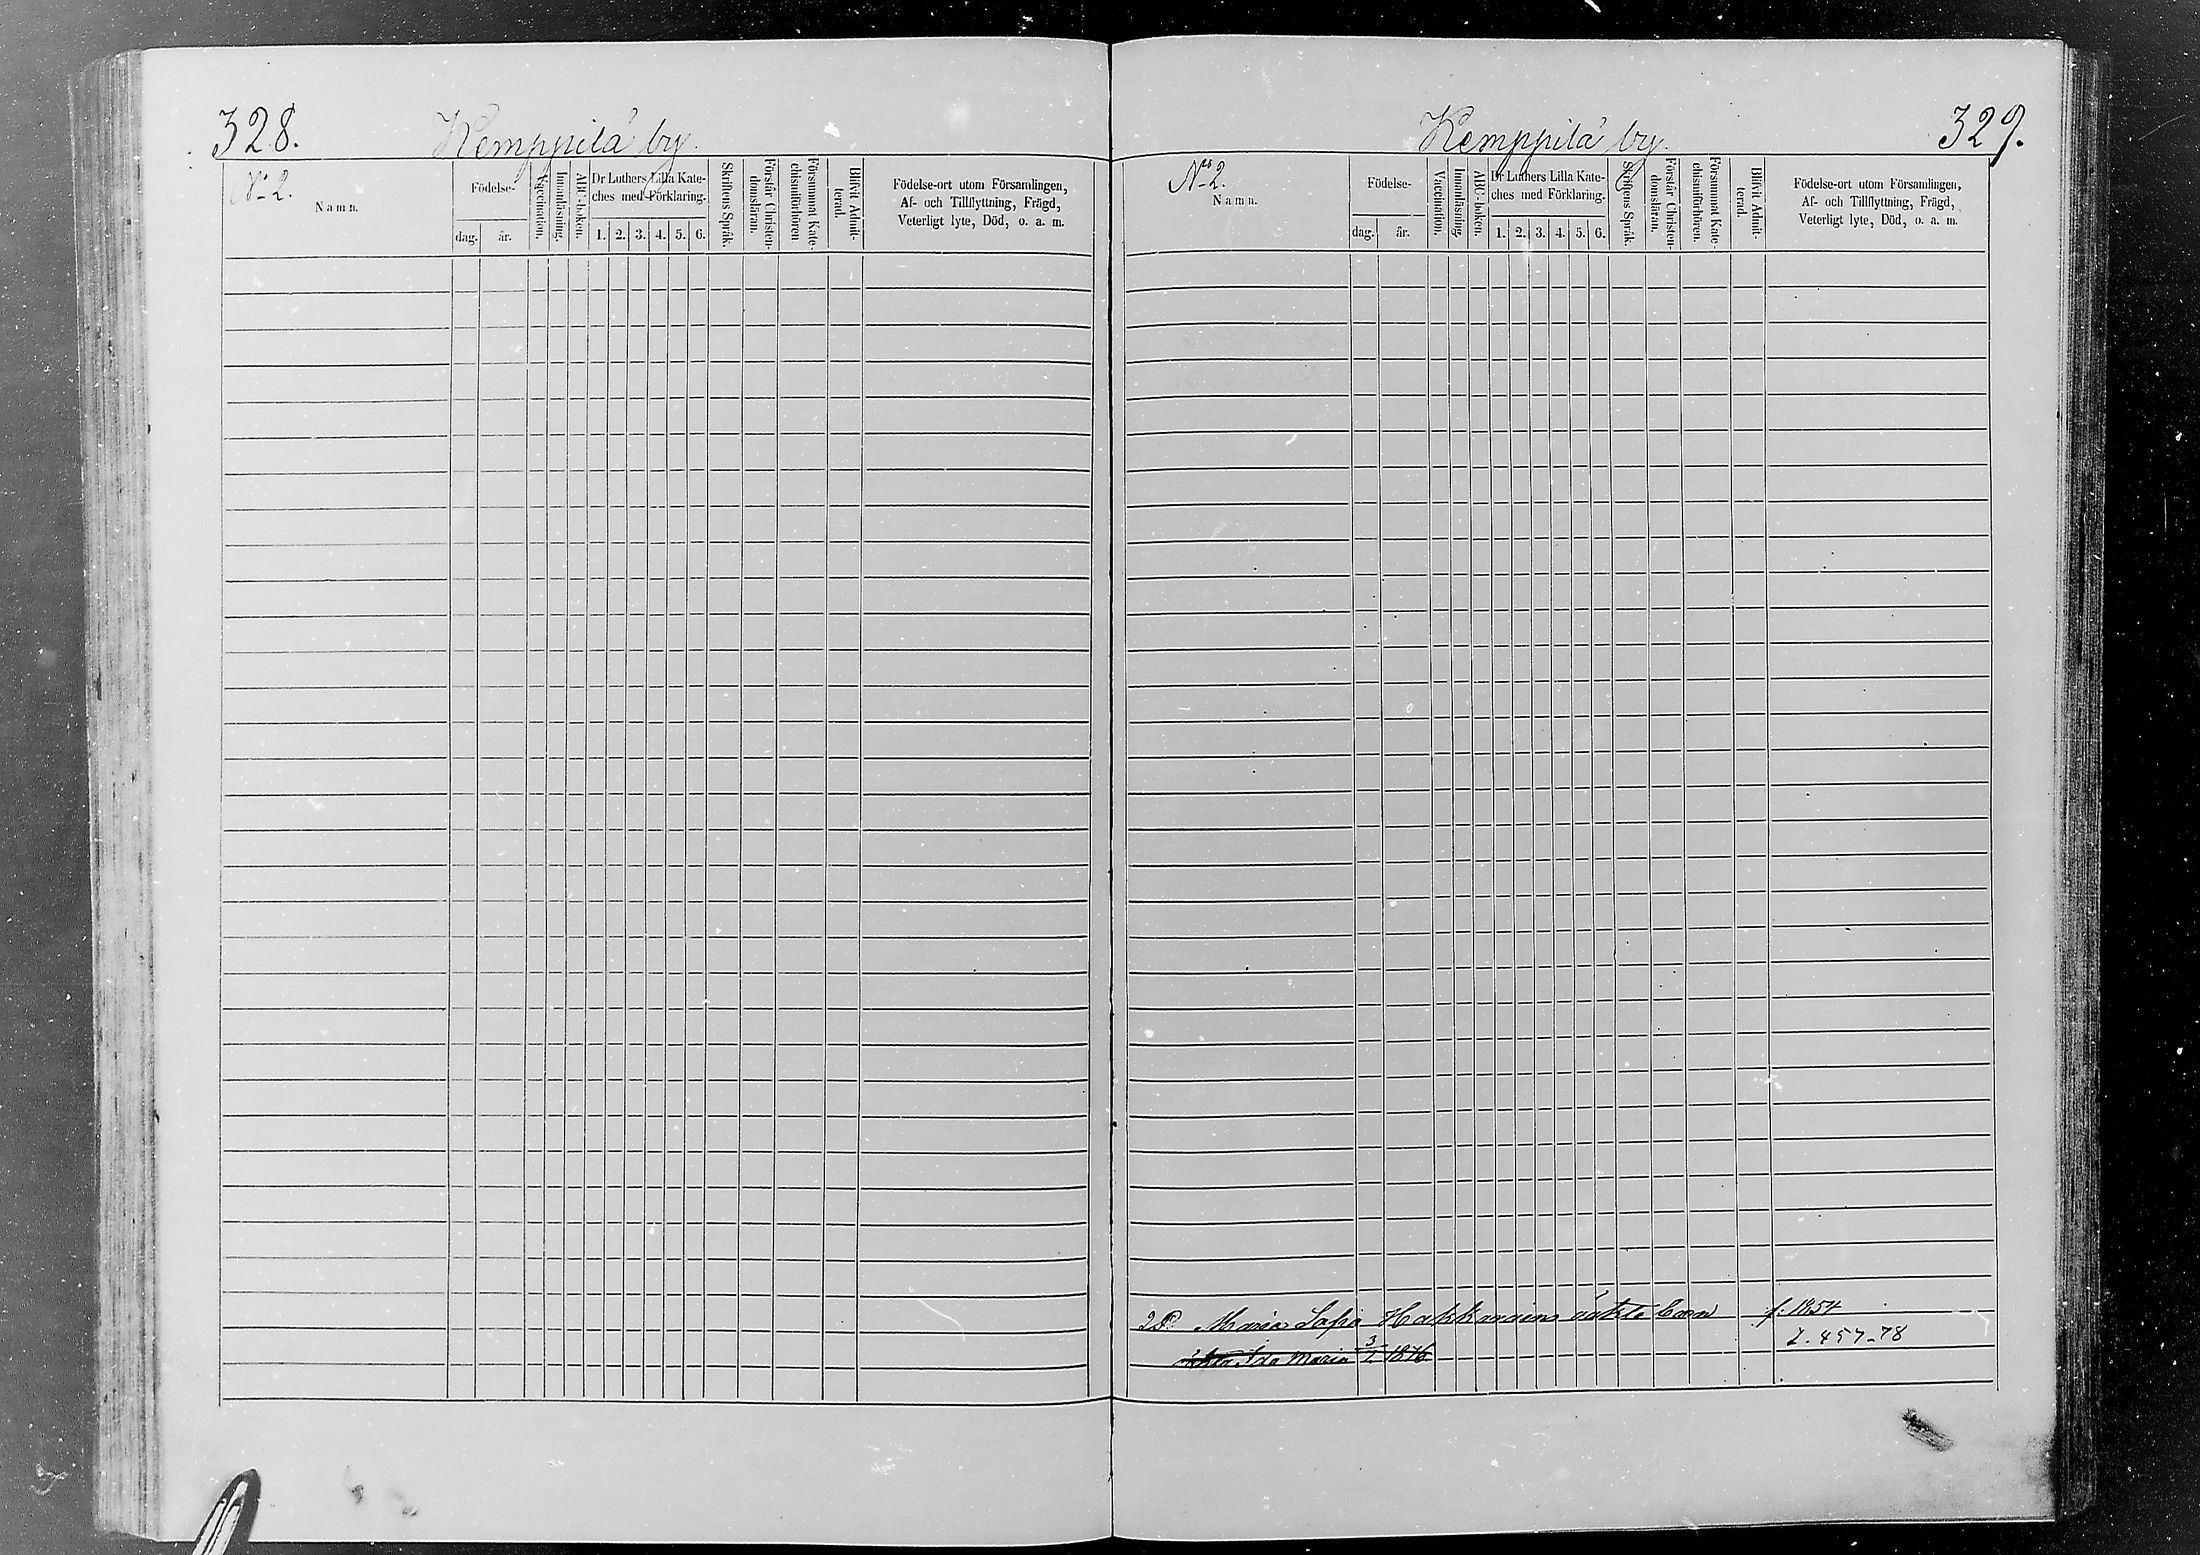 328.
Kemppilä by.
No 2.
Namn.
Födelse-
dag.
år.
Vaccination.
Innanläsning.
ABC-boken.
Dr Luthers Lilla Kate-
ches med Förklaring.
1. 2. 3. 4. 5. 6.
Skriftens Språk.
Förstår Christen-
domsläran.
Försummat Kate-
chismiförhören.
Blifvit Admit-
terad.
Födelse-ort utom Församlingen,
Af- och Tillflyttning, Frägd,
Veterligt lyte, Död, o. a. m.
Kemppilä by.
329.
No 2.
Namn.
Födelse-
dag.
år.
Vaccination.
Innanläsning.
ABC-boken.
Dr Luthers Lilla Kate-
ches med Förklaring.
1. 2. 3. 4. 5. 6.
Skriftens Språk.
Förstår Christen-
domsläran.
Försummat Kate-
chismiförhören.
Blifvit Admit-
terad.
Födelse-ort utom Församlingen,
Af- och Tillflyttning, Frägd,
Veterligt lyte, Död, o. a. m.
Maria Sofia Hakkarains oäkta barn f. 1854
457-78
Ida Maria 3/1 1876